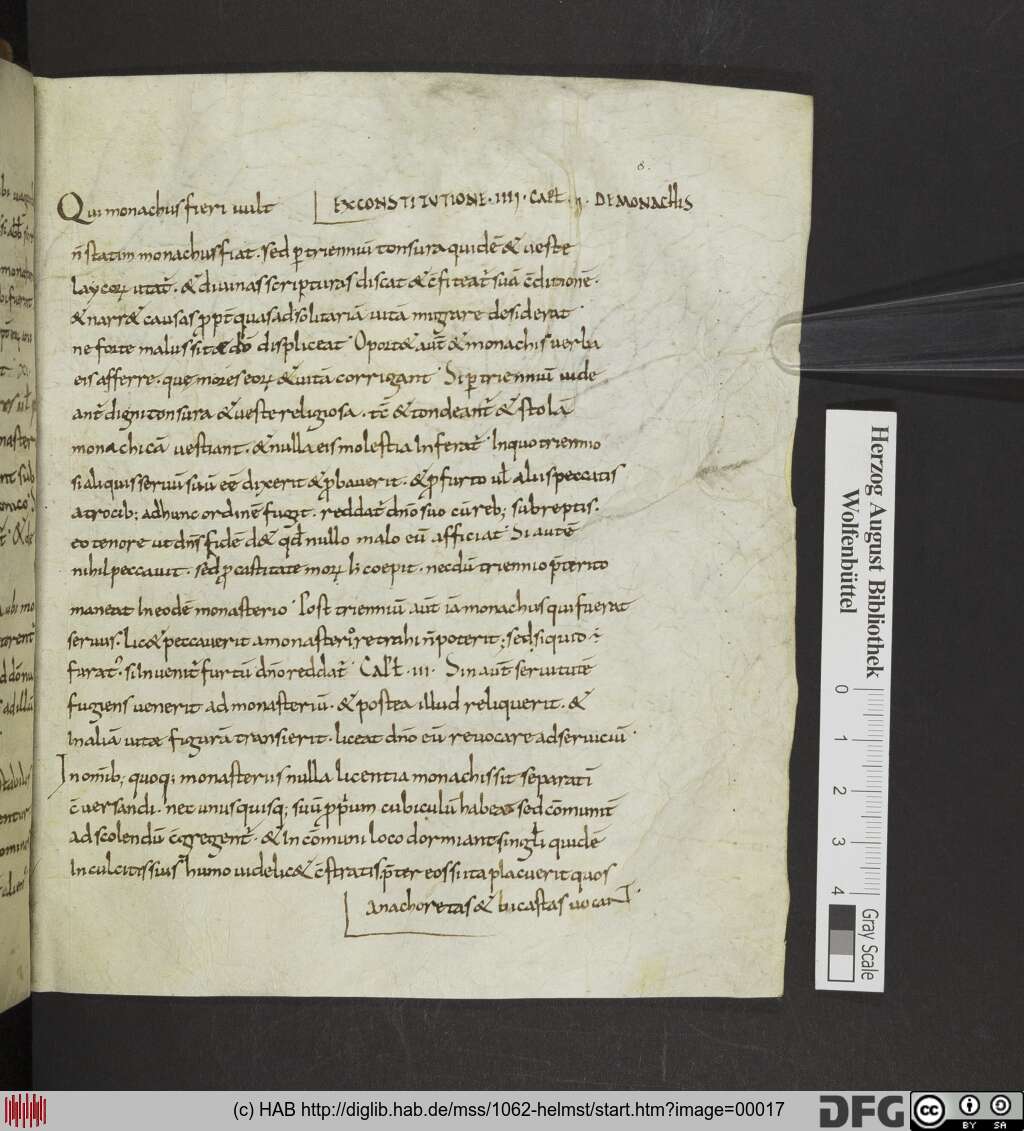 8.
Qui monachus fieri vult EX CONSTITUTIONE · IIII · CAPŁ · II · DE MONACHIS
n̄ statim monachus fiat · sed p triennium tonsura quidē & veste
laycoꝝ utat᷑ · & divinas scripturas discat & c̄fiteat᷑ suā c̄ditionē ·
& narr& causas ꝓpt̄ quas ad solitariā vitā migrare desiderat
ne forte malus sit & dō displiceat Oport& aut̄ & monachis verba
eis afferre · quę mores eoꝝ & vitā corrigant Si p triennium vide
ant᷑ digni tonsura & veste religiosa · tc̄ & tondeant᷑ & stolā
monachicā vestiant · & nulla eis molestia Inferat᷑ In quo triennio
si aliquis servū suū eē dixerit & ꝓbaverit · & ꝓ furto vł aliis peccatis
atrocib; ad hunc ordinē fugit · reddat᷑ dn̄o suo cū reb; subreptis ·
eo tenore ut dn̄s fidē d& qd̄ nullo malo eū afficiat Si autē
nihil peccavit · sed ꝓ castitate moꝝ h̄ coepit · necdū triennio p̄terito
maneat In eodē monasterio Post triennium aut̄ iā monachus qui fuerat
servus · lic& peccaverit a monasterio retrahi n̄ poterit; sed si quid
furat᷑ · si Invenit᷑ furtū dn̄o reddat᷑ Capł · III · Sin aut̄ servitutē
fugiens venerit ad monasteriū · & postea illud reliquerit · &
In aliā vitae figurā transierit · liceat dn̄o eū revocare ad serviciū
In om̄ib; quoq; monasteriis nulla licentia monachis sit separatī
c̄versandi · nec unusquisq; suū ꝓprium cubiculū habeat sed cōmunit᷑
ad scolendū c̄gregent᷑ · & In cōmuni loco dormiant singuli quidē
In culcitis sius humo videlic& c̄stratis p̄ter eos si ita placuerit quos
anachoretas & hicastas vocant
Herzog August Bibliothek
Wolfenbüttel
0 1 2 3 4
Gray Scale
(c) HAB http://diglib.hab.de/mss/1062-helmst/start.htm?image=00017
DFG
cc BY SA